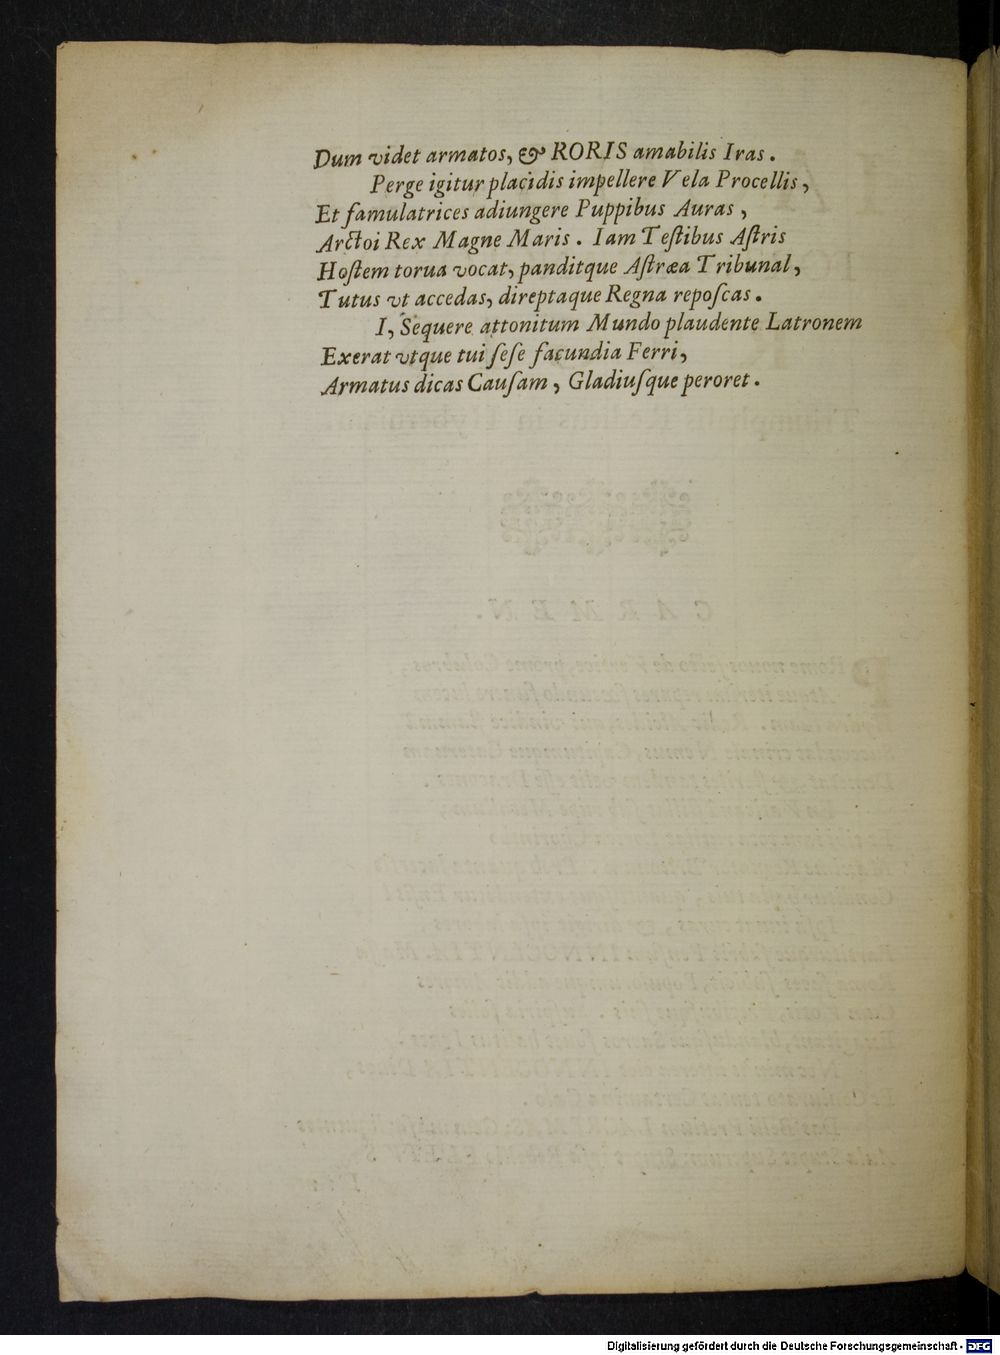 Dum videt armatos, & RORIS amabilis Iras.
Perge igitur placidis impellere Vela Procellis,
Et famulatrices adiungere Puppibus Auras,
Arctoi Rex Magne Maris. Iam Teſtibus Aſtris
Hoſtem torua vocat, panditque Aſtræa Tribunal,
Tutus vt accedas, direptaque Regna repoſcas.
I, Sequere attonitum Mundo plaudente Latronem
Exerat vtque tui ſeſe facundia Ferri,
Armatus dicas Cauſam, Gladiuſque peroret.
Digitalisierung gefördert durch die Deutsche Forschungsgemeinschaft - DFG